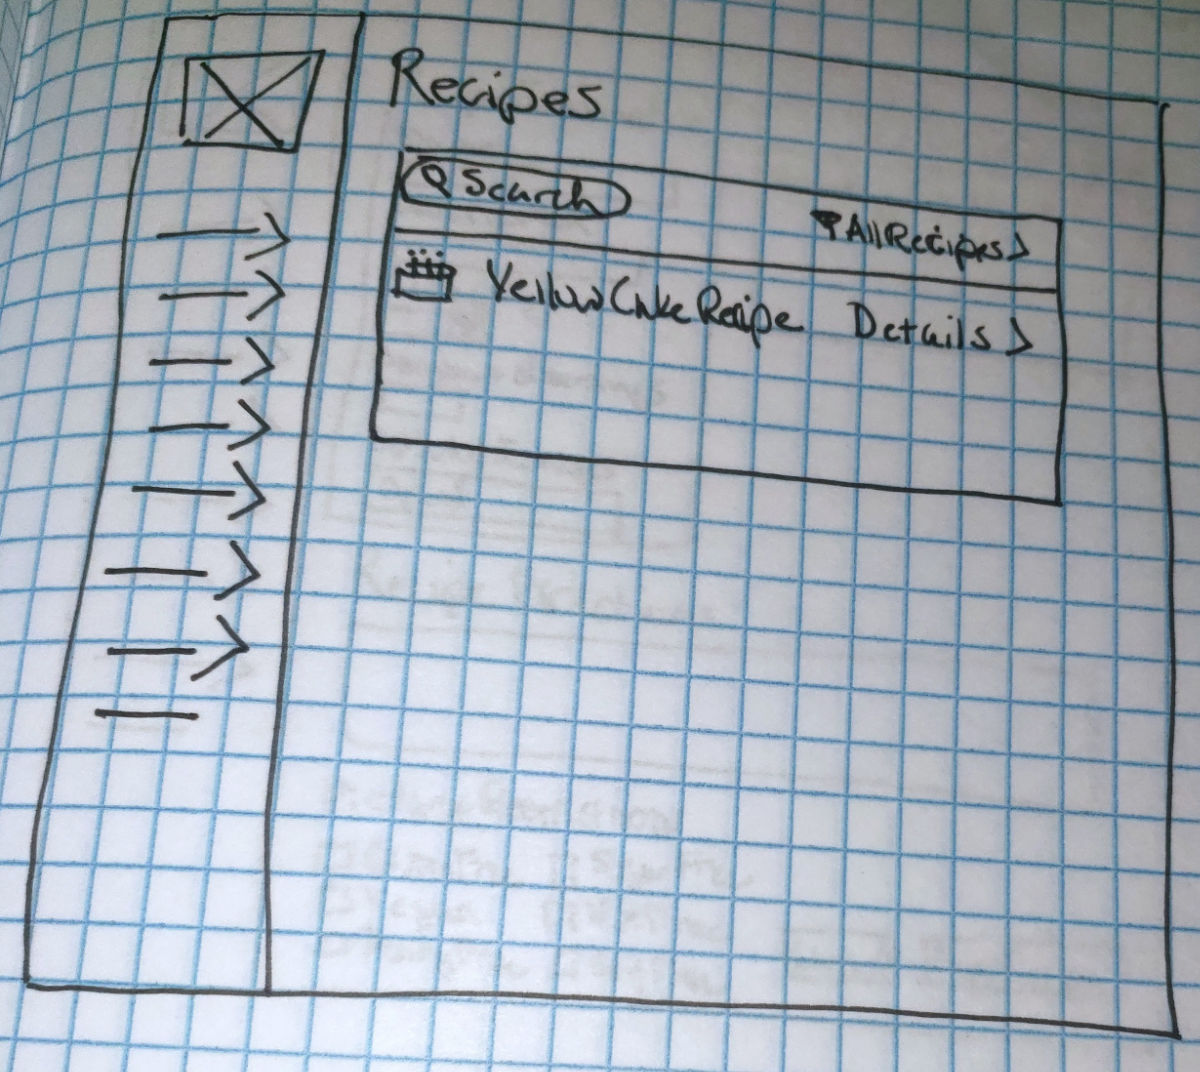 Recipes
Search
All Recipes >
Yellow Cake Recipe Details >